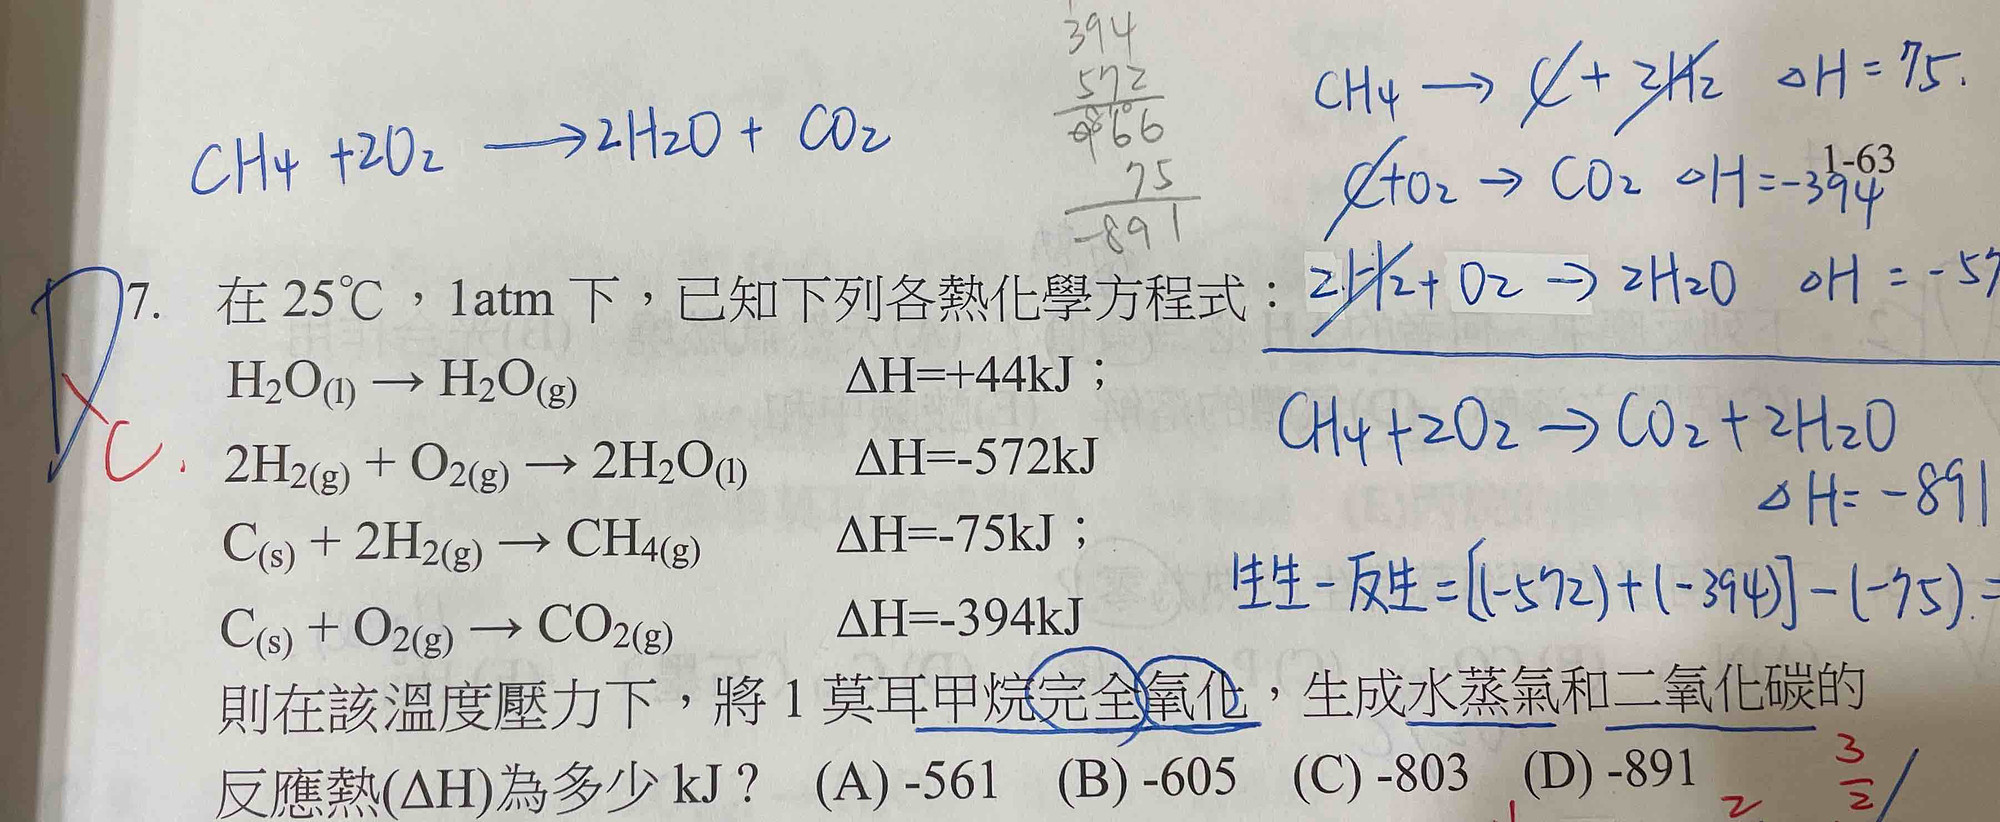 394
572
966
75
-891
CH4 +2O2 → 2H2O + CO2
CH4 → C + 2H2 △H = 75.
C+O2 → CO2 △H = -394
1-63
2H2+ O2 → 2H2O △H = -57
CH4+2O2 → CO2 + 2H2O
△H= -891
生生-反生=[(-572)+(-394)]-(-75).=
D
C.
7. 在 25℃,1atm 下,已知下列各熱化學方程式:
H2O(l) → H2O(g) ΔH=+44kJ;
2H2(g) + O2(g) → 2H2O(l) ΔH=-572kJ
C(s) + 2H2(g) → CH4(g) ΔH=-75kJ;
C(s) + O2(g) → CO2(g) ΔH=-394kJ
則在該溫度壓力下,將 1 莫耳甲烷完全氧化,生成水蒸氣和二氧化碳的
反應熱(ΔH)為多少 kJ? (A) -561 (B) -605 (C) -803 (D) -891
3
2
2